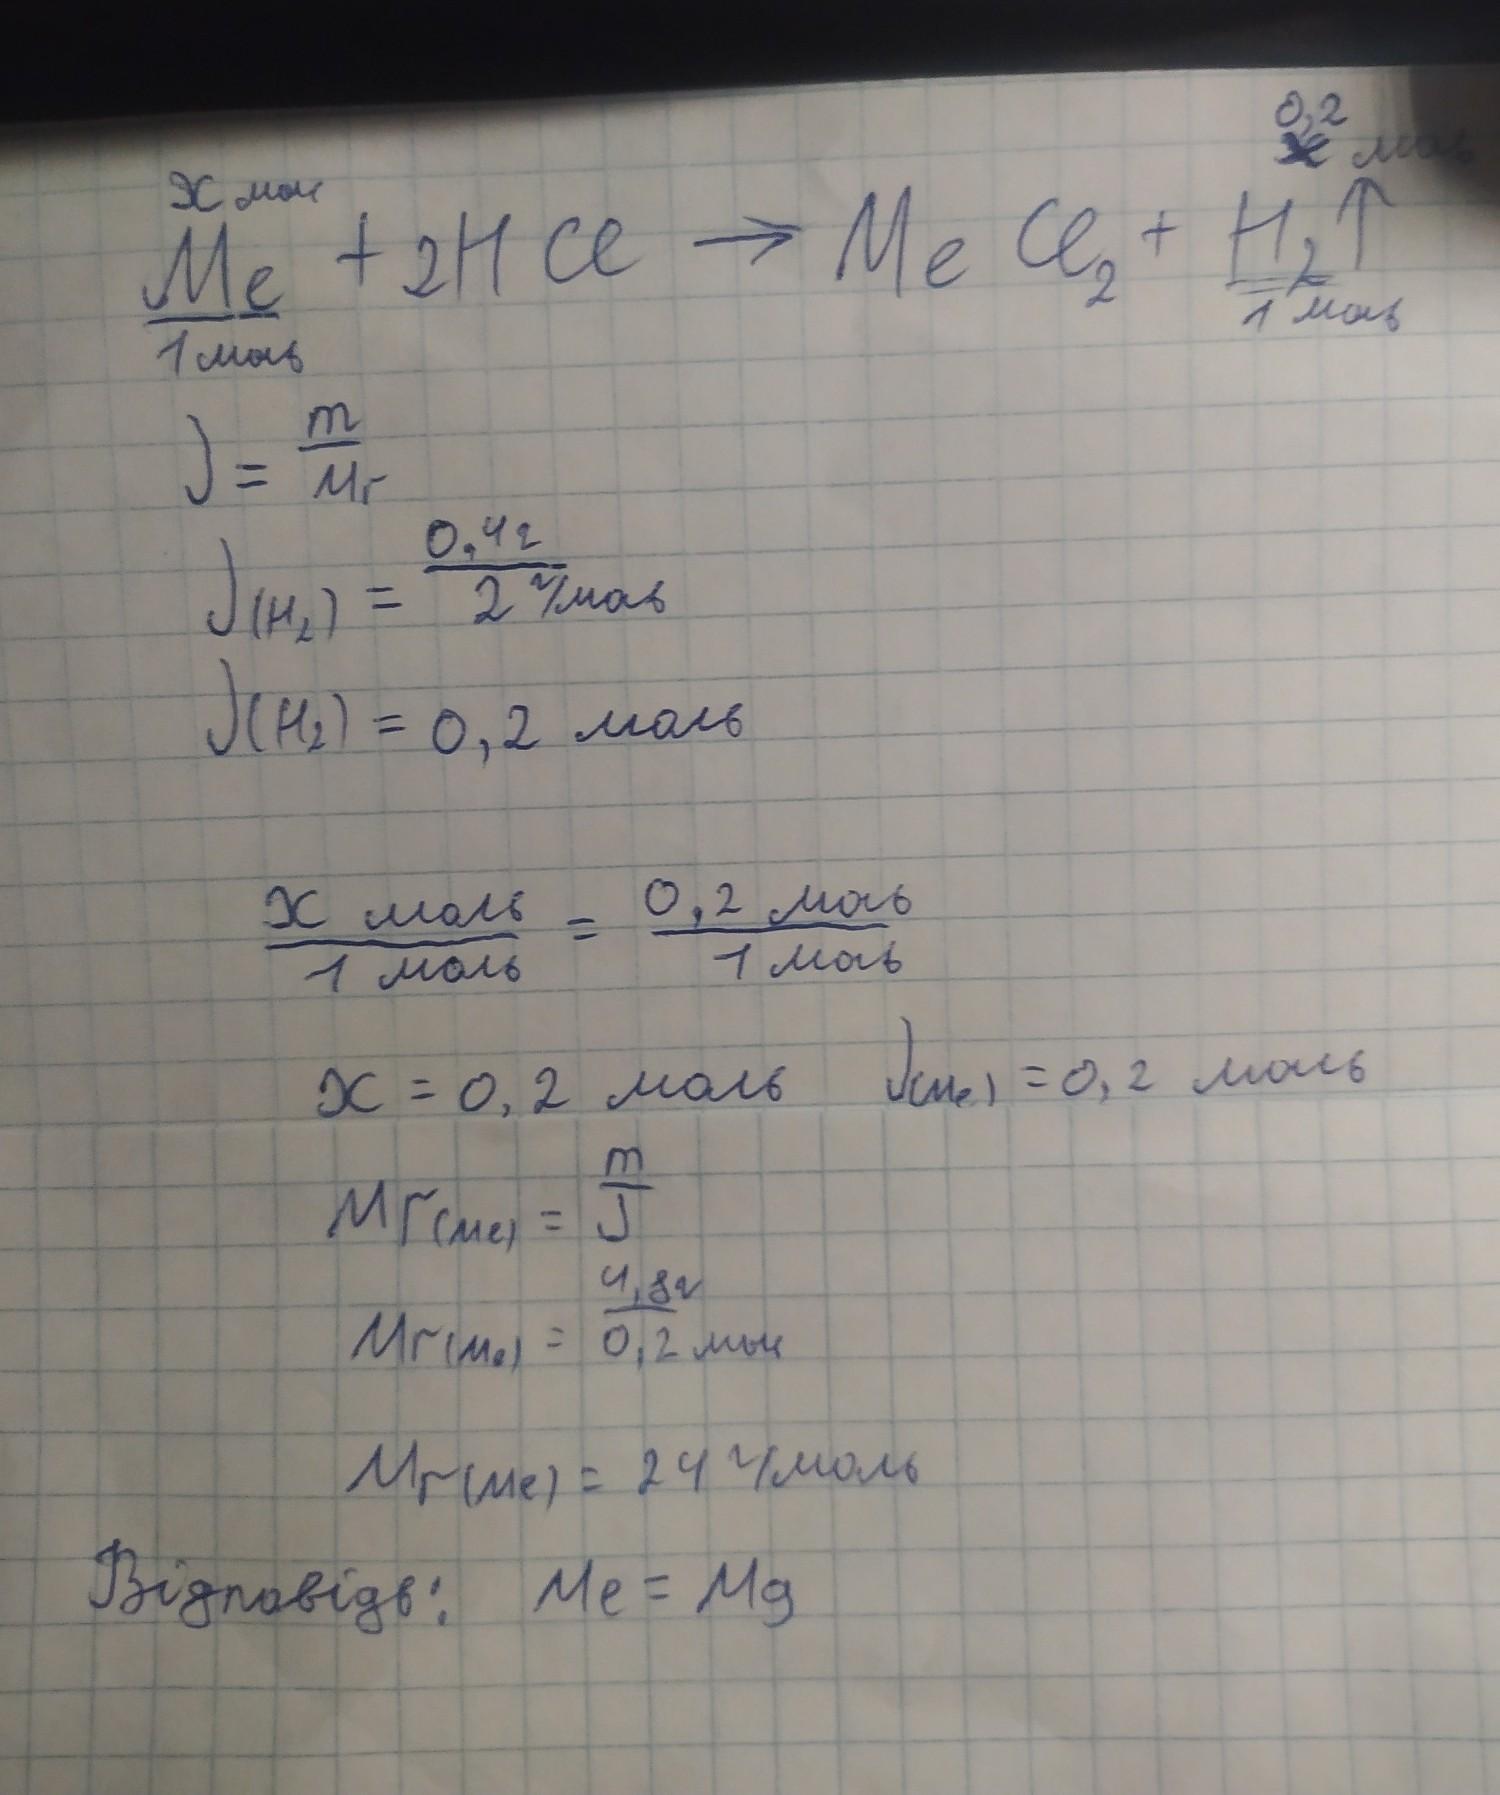 x моль 0,2 моль
Me + 2HCl → MeCl₂ + H₂↑
1 моль 1 моль
ν = m/Mr
ν(H₂) = 0,4г / 2 г/моль
ν(H₂) = 0,2 моль
x моль / 1 моль = 0,2 моль / 1 моль
x = 0,2 моль ν(Me) = 0,2 моль
Mr(Me) = m/ν
Mr(Me) = 4,8г / 0,2 моль
Mr(Me) = 24 г/моль
Відповідь: Me = Mg